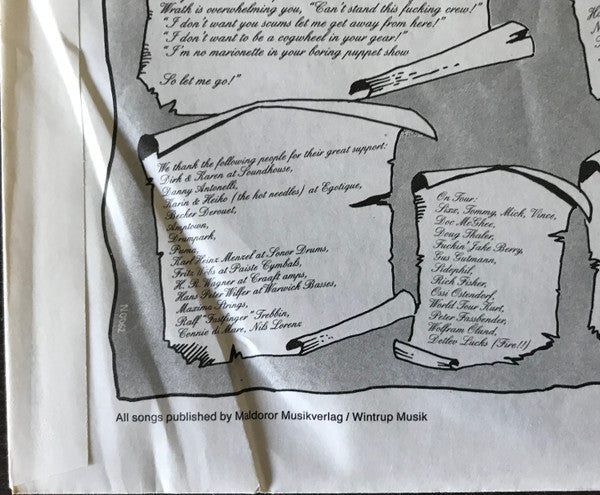 Wrath is overwhelming you, "Can't stand this fucking crew!"
"I don't want you scums let me get away from here!"
"I don't want to be a cogwheel in your gear!"
"I'm no marionette in your boring puppet show
So let me go!"
We thank the following people for their great support:
Dirk & Karen at Soundhouse,
Danny Antonelli,
Karin & Heiko (the hot needles) at Egotique,
Becker Derouet,
Amptown,
Drumpark,
Puma,
Karl Heinz Menzel at Sonor Drums,
Fritz Webs at Paiste Cymbals,
H. R. Wagner at Craaft amps,
Hans Peter Wilfer at Warwick Basses,
Maxima Strings,
Ralf "Fastfinger" Trebbin,
Connie di Mare, Nils Lorenz
On Tour:
Size, Tommy, Mick, Vince,
Doc McGhee,
Doug Thaler,
Fuckin' Jake Berry,
Gus Gutmann,
Sidephil,
Rich Fisher,
Ossi Ostendorf,
World Tour Kurt,
Peter Fassbender,
Wolfram Olund,
Detlev Lucks (Fire!!)
All songs published by Maldoror Musikverlag / Wintrup Musik